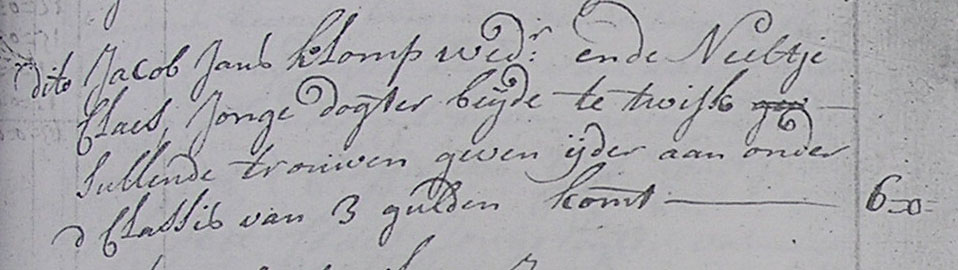 dito Jacob Jans Klomp wedr. ende Neeltje
Claes, Jonge dogter beÿde te twisk
Sullende trouwen geven ijder aan onder
d Classis van 3 gulden komt — 6-0=